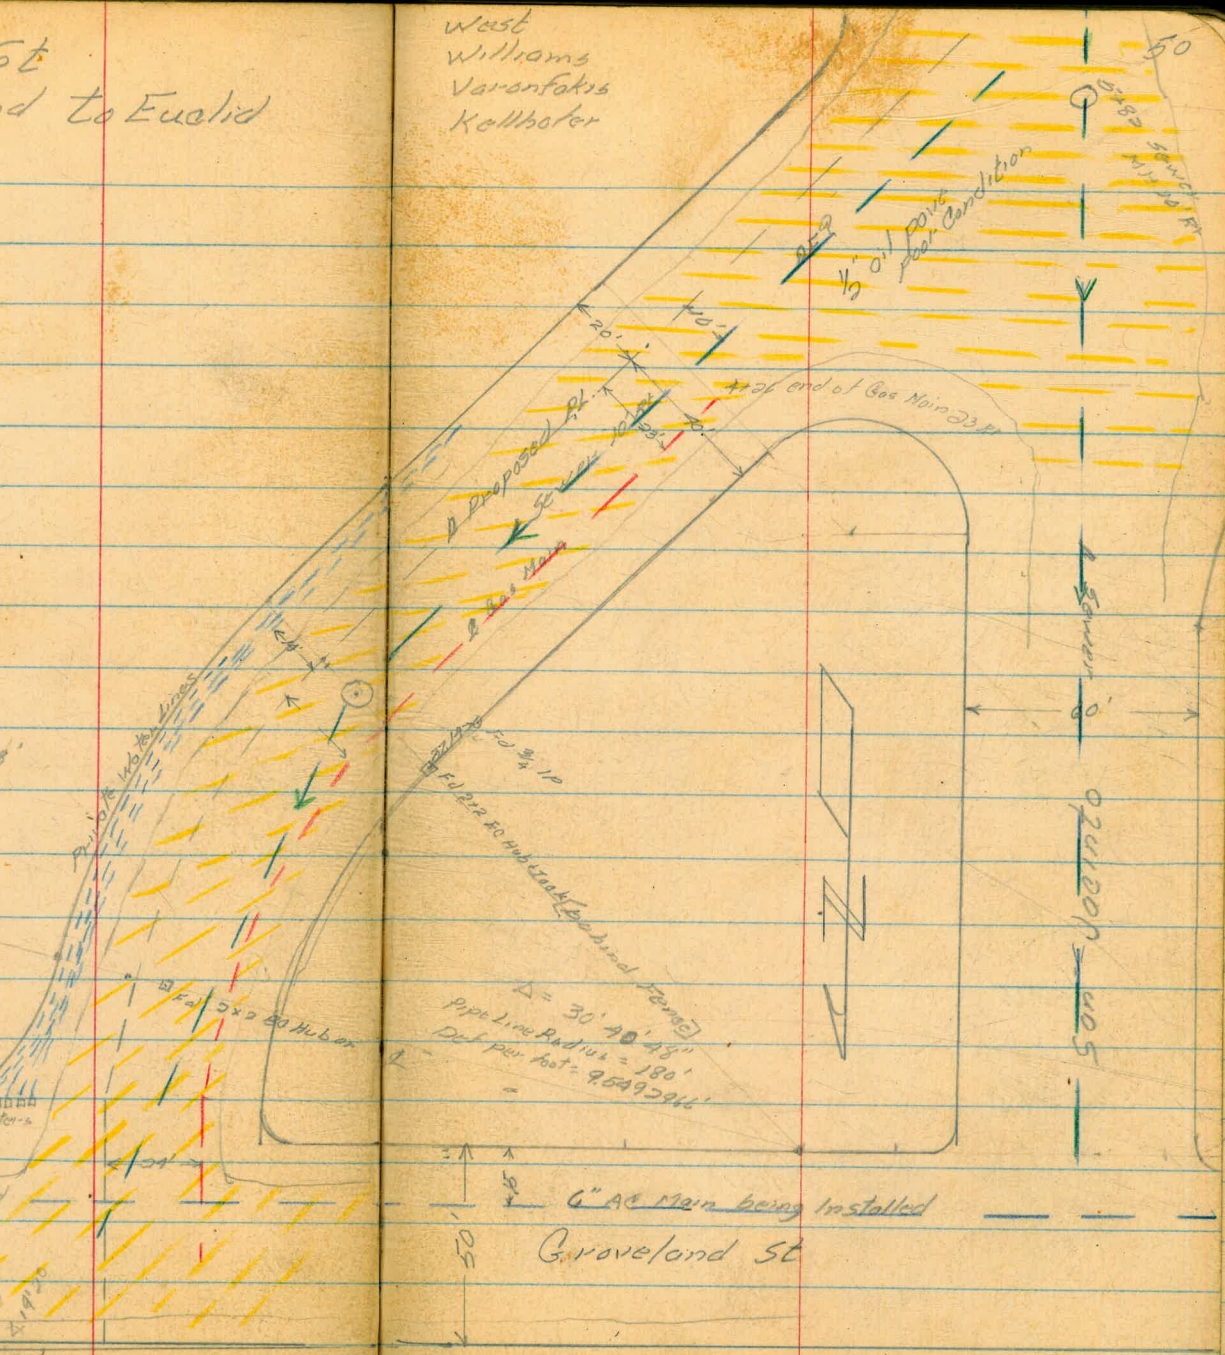 St
to Euclid
West
Williams
Varonfakis
Kellhofer
50
Sewer
MH 20' Rt
2+82.0
1/2" oil pave
poor Condition
20'
40'
4+26 end of Gas Main 23 Rt
Proposed PL
Sewer 10' Rt
23'
40'
℄ Gas Main
4'
Private Water Lines
Fd 3/4 IP
Fd 2x2 EC Hub & Tack (behind fence)
Fd 2x2 BC Hub on
Δ = 30° 40' 48"
Pipe Line Radius = 180'
Def per foot = 9.5492966'
℄ Sewer
San Jacinto
N
24'
9'
6" AC Main being Installed
50'
Groveland St